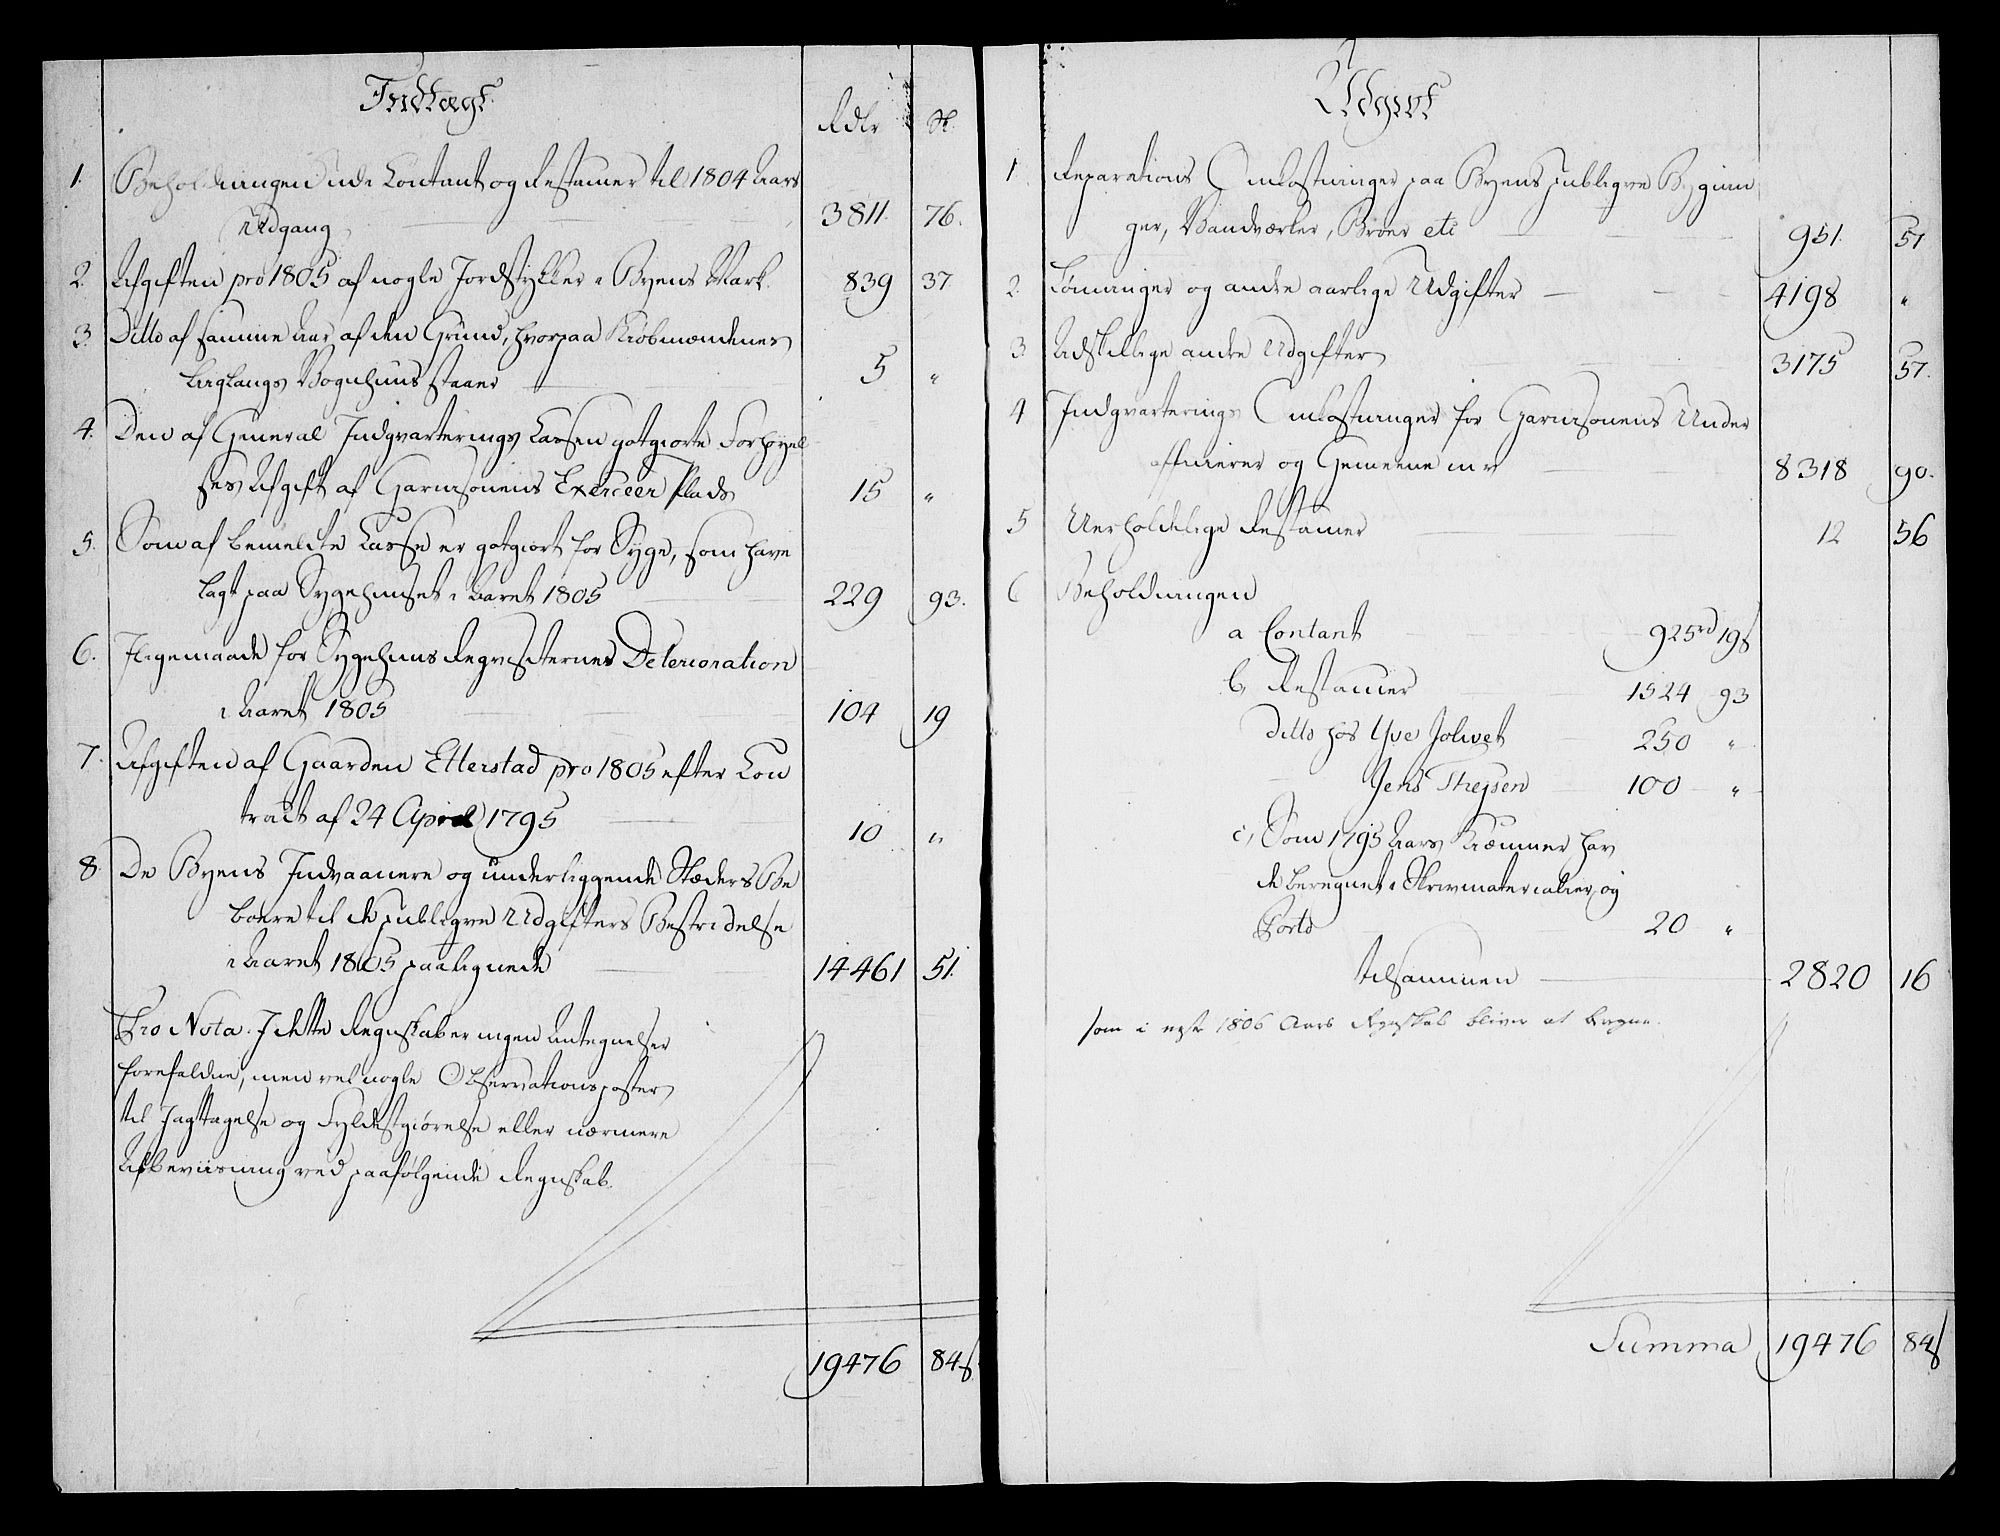 Indtægt
Rdlr Sk.
1. Beholdningen udi Contant og Restancer til 1804 Aars
Udgang 3811. 76.
2. Afgiften pro 1805 af nogle Jordstykker i Byens Mark. 839 37.
3. Ditto af samme Aar af den Grund, hvorpaa Kiøbmændenes
Laglaugs Vognhuus staaer 5 "
4. Den af General Indqvarterings Cassen godtgiorte Forhøyel
ses Afgift af Garnisonens Exerceer Plads 15 "
5. Som af bemeldte Casse er godtgiort for Syge, som have
lagt paa Sygehuuset i Aaret 1805 229 93.
6. Iligemaade for Sygehuus Reqvisiternes Deterioration
i Aaret 1805 104 19
7. Afgiften af Gaarden Etterstad pro 1805 efter Con
tract af 24 April 1795 10 "
8. De Byens Indvaanere og underliggende Stæders Be
boere til de publiqve Udgifters Bestridelse
i Aaret 1805 paalignede 14461 51.
Pro Nota. I dette Regnskab er ingen Antegnelser
forefaldne, men vel nogle Observationsposter
til Iagttagelse og Fyldestgiørelse eller nærmere
Afbeviisning ved paafølgende Regnskab.
19476 84 s.
Udgivt
1 Reparations Omkostninger paa Byens publiqve Bygnin
ger, Vandværker, Broer etc 951. 51
2. Lønninger og andre aarlige Udgifter 4198 "
3 Adskillige andre Udgifter 3175 57.
4 Indqvarterings Omkostninger for Garnisonens Under
officierer og Gemeene m v 8318 90.
5 Uerholdelige Restancer 12 56
6 Beholdningen
a Contant 925 rd 19 s
b, Restancer 1524 93
Ditto hos Yve Jolivet 250 "
Jens Thejsen 100 "
c, Som 1795 Aars Kæmner hav
de beregnet i Skrivmaterialier og
Porto 20 "
tilsammen 2820 16
som i næste 1806 Aars Regnskab bliver at beregne.
Summa 19476 84 s